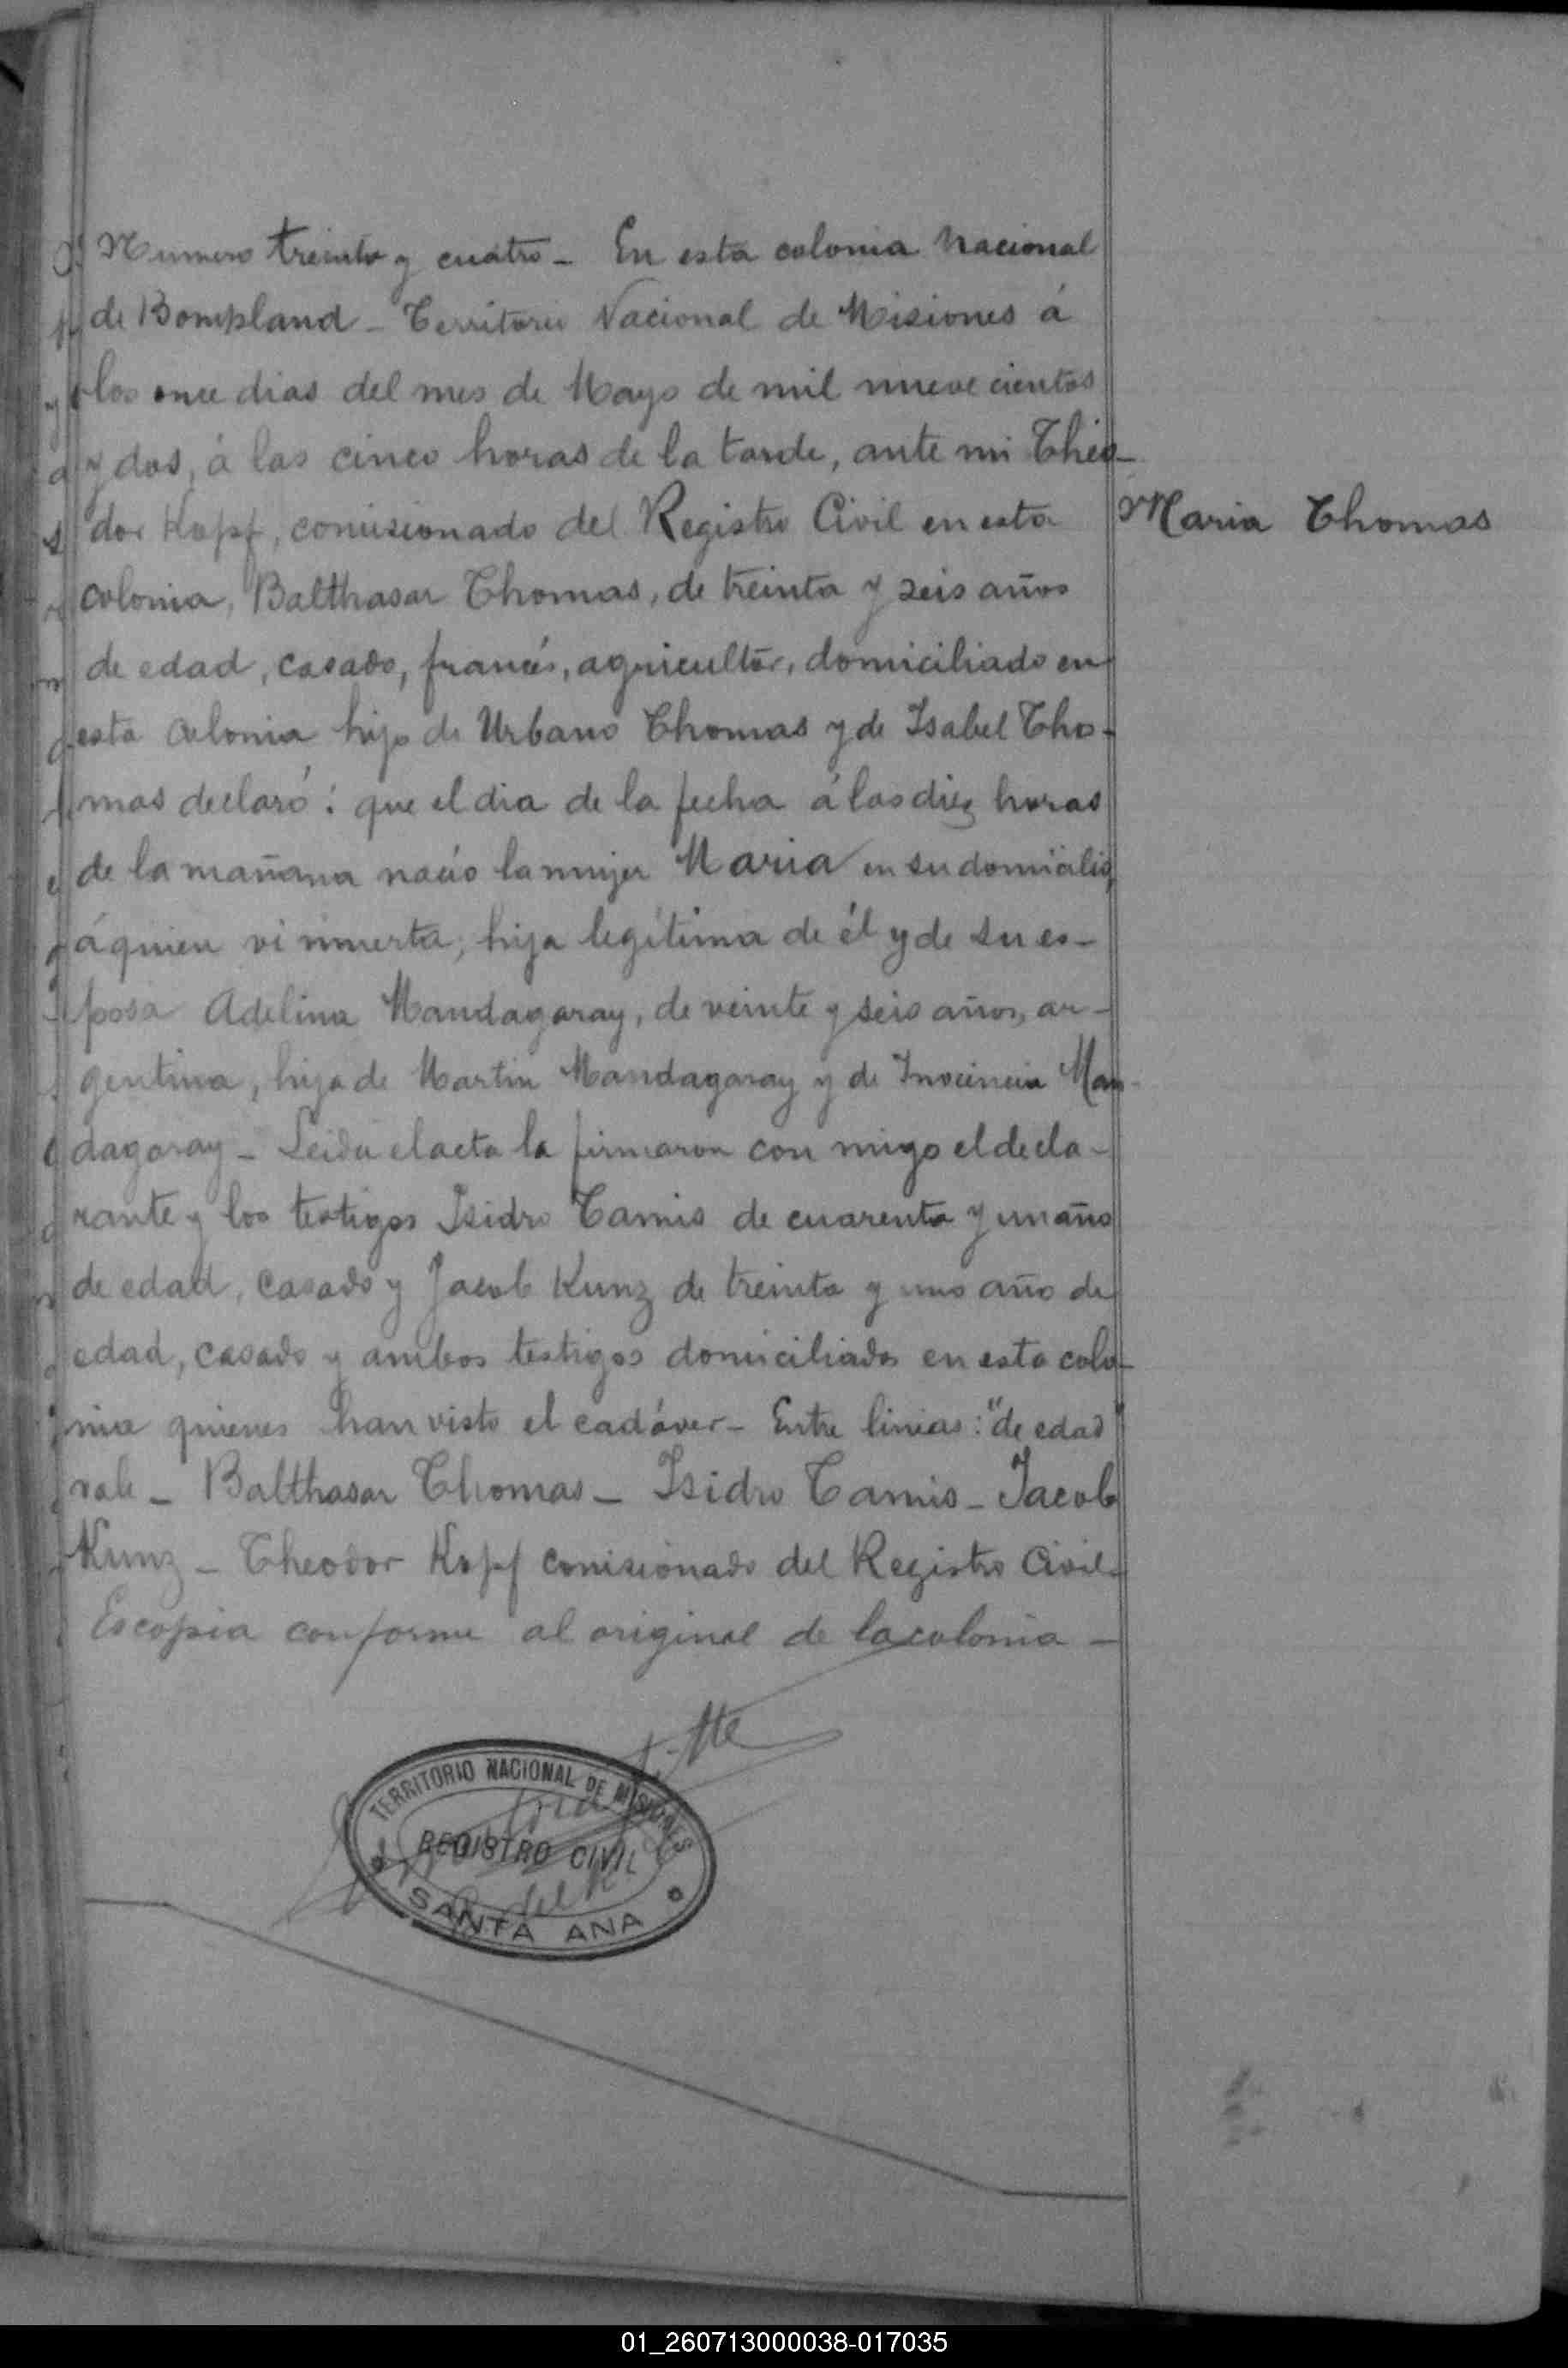 Numero treinta y cuatro - En esta colonia Nacional
de Bompland - Territorio Nacional de Misiones á
los once dias del mes de Mayo de mil nueve cientos
y dos, á las cinco horas de la tarde, ante mi Theo-
dor Kopf, comisionado del Registro Civil en esta
Maria Thomas
colonia, Balthasar Thomas, de treinta y seis años
de edad, casado, francés, agricultor, domiciliado en
esta colonia hijo de Urbano Thomas y de Isabel Tho-
mas declaró: que el dia de la fecha á las diez horas
de la mañana nació la mujer Maria en su domicilio,
á quien vi muerta, hija legítima de él y de su es-
posa Adelina Mandagaray, de veinte y seis años, ar-
gentina, hija de Martin Mandagaray y de Inocencia Man-
dagaray - Leida el acta la firmaron con migo el decla-
rante y los testigos Isidro Tamis de cuarenta y un año
de edad, casado y Jacob Kunz de treinta y uno año de
edad, casado y ambos testigos domiciliados en esta colo-
nia quienes han visto el cadáver - Entre linias: "de edad"
vale - Balthasar Thomas - Isidro Tamis - Jacob
Kunz - Theodor Kopf comisionado del Registro Civil -
Es copia conforme al original de la colonia -
TERRITORIO NACIONAL DE MISIONES
REGISTRO CIVIL
SANTA ANA
01_260713000038-017035